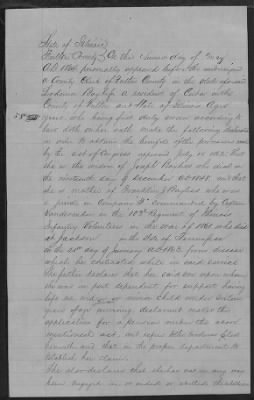 State of Illinois
Fulton County On this Second day of May
A.D. 1866 personally appeared before the undersigned
a County Clerk of Fulton County in the state aforesaid
a resident of Cuba in the
County of Fulton and State of Illinois Aged
58 years who being first duly sworn according to
law doth on her oath make the following declaration
in order to obtain the benefits of the provisions made
by the act of Congress approved July 14 1862 that
she is the widow of who died on
the nineteenth day of December and that
she is mother of Franklin who was
a private in Company commanded by Captain
in the 103d Regiment of Illinois
Infantry Volunteers in the war of 1861 who died
at Jackson in the State of
on the day of January A.D. 1863 from disease
which he contracted while in said service
She further declares that her said son upon whom
she was in part dependent for support having
left no widow or minor child under sixteen
years of age surviving declarant makes this
application for a pension under the above
mentioned act, and refers to the evidence filed
herewith and that in the proper department to
establish her claim
She also declares that she has not in any way
been engaged in or aided or abetted the rebellion